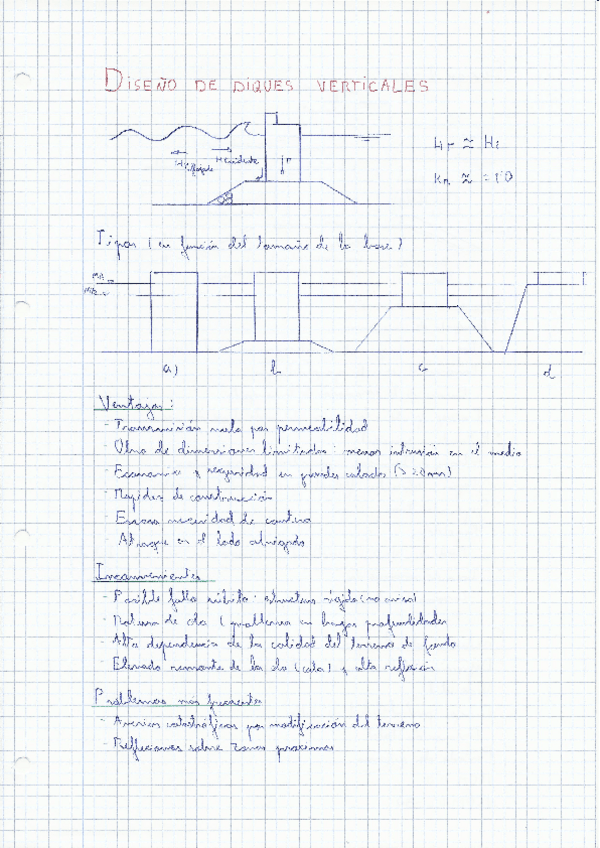 DISEÑO DE DIQUES VERTICALES
Hr ≈ Hi
H incidente
H reflejada
KR ≈ = 1'0
Tipos (en función del tamaño de la base)
a) b c d
Ventajas:
- Transmisión nula por permeabilidad
- Obra de dimensiones limitadas: menor intrusión en el medio
- Economía y seguridad en grandes calados (> 20m)
- Rapidez de construcción
- Escasa necesidad de cantera
- Atraque en el lado abrigado
Inconvenientes
- Posible fallo súbito: estructura rígida (no avisa)
- Rotura de ola (problemas en bajas profundidades
- Alta dependencia de la calidad del terreno de fondo
- Elevado remonte de la ola (cota) y alta reflexión
Problemas más frecuentes
- Averías catastróficas por modificación del terreno
- Reflexiones sobre zonas próximas